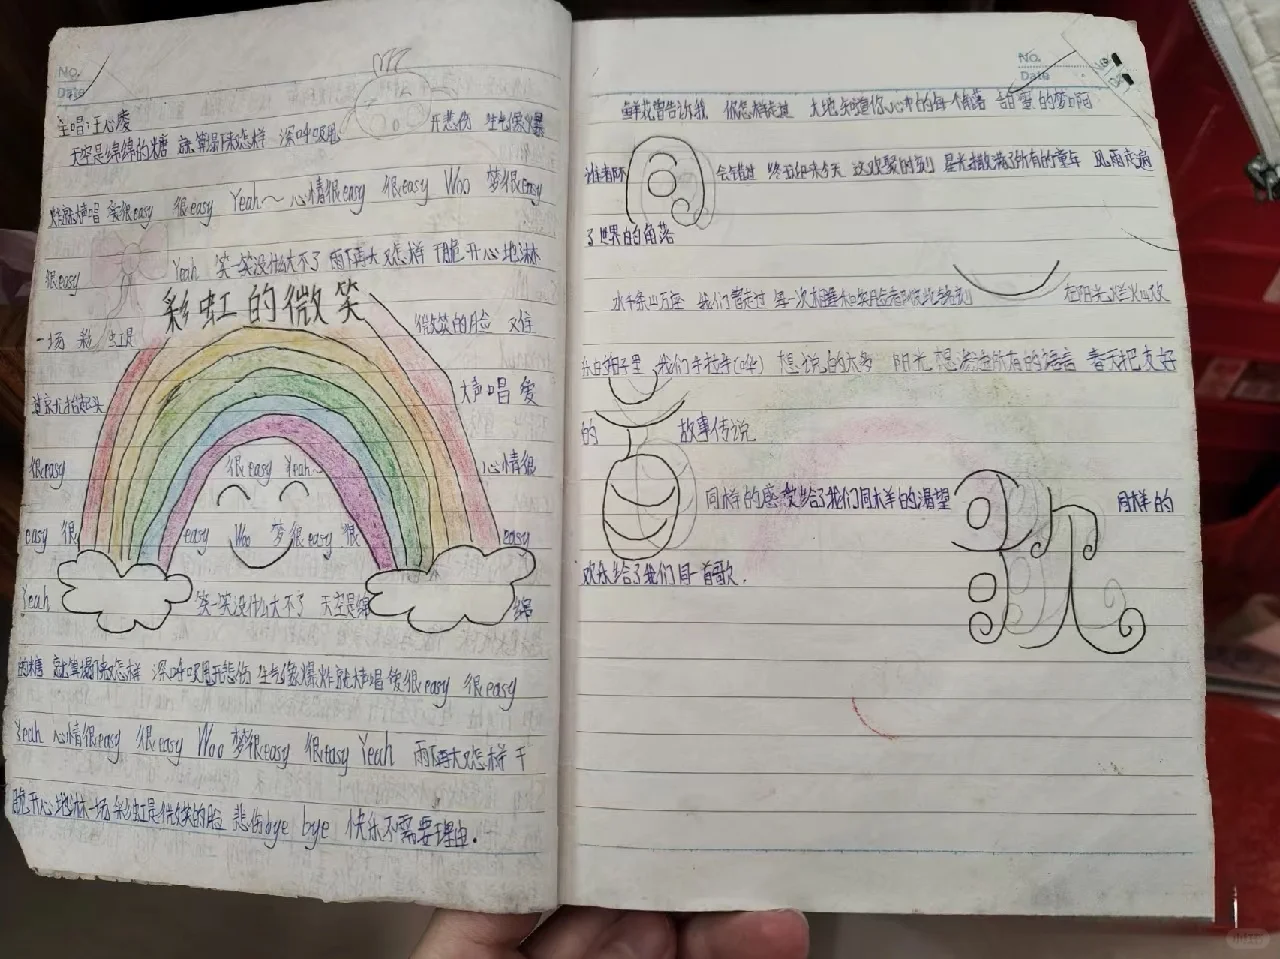 No.
Date
主唱:王心凌
天空是绵绵的糖 就算塌下来又怎样 深呼吸甩开悲伤 生气像爆
炸就大声唱 爱很easy 很easy Yeah~ 心情很easy 很easy Woo 梦很easy
很easy Yeah 笑一笑没什么大不了 雨下再大又怎样 干脆开心地淋
彩虹的微笑
一场 彩虹是 微笑的脸 难
过就大声唱 爱
很easy 很easy Yeah~ 心情很
easy 很easy Woo 梦很easy 很easy
Yeah 笑一笑没什么大不了 天空是绵绵
的糖 就算塌下来又怎样 深呼吸甩开悲伤 生气像爆炸就大声唱 爱很easy 很easy
Yeah 心情很easy 很easy Woo 梦很easy 很easy Yeah 雨下再大又怎样 干
脆开心地淋一场 彩虹是微笑的脸 悲伤bye bye 快乐不需要理由.
No.
Date
鲜花曾告诉我 你怎样走过 大地知道你心中的每个角落 甜蜜的梦啊
谁都不会错过 终于迎来今天 这欢聚时刻 星光洒满了所有的童年 风雨走遍
了世界的角落
水千条山万座 我们曾走过 每一次相逢和笑脸都彼此铭刻 在阳光灿烂欢
乐的日子里 我们手拉手 想说的太多 阳光想渗透所有的语言 春天把友好
的 故事传说
同样的感受给了我们同样的渴望 同样的
欢乐给了我们同一首歌.